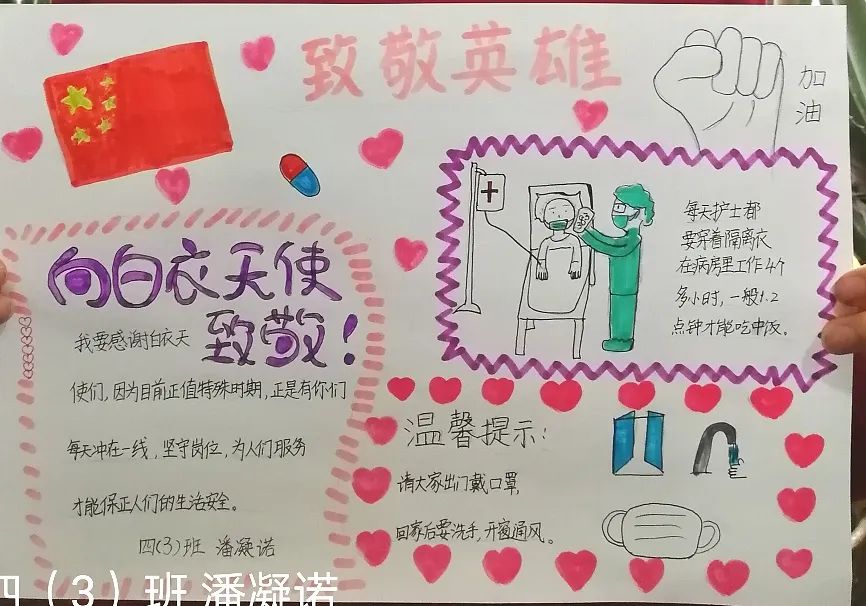 致敬英雄
加
油
每天护士都
要穿着隔离衣
在病房里工作4个
多小时,一般1.2
点钟才能吃中饭。
向白衣天使
致敬!
我要感谢白衣天
使们,因为目前正值特殊时期,正是有你们
每天冲在一线,坚守岗位,为人们服务
才能保正人们的生活安全。
四(3)班 潘凝诺
温馨提示:
请大家出门戴口罩,
回家后要洗手,开窗通风。
四(3)班 潘凝诺